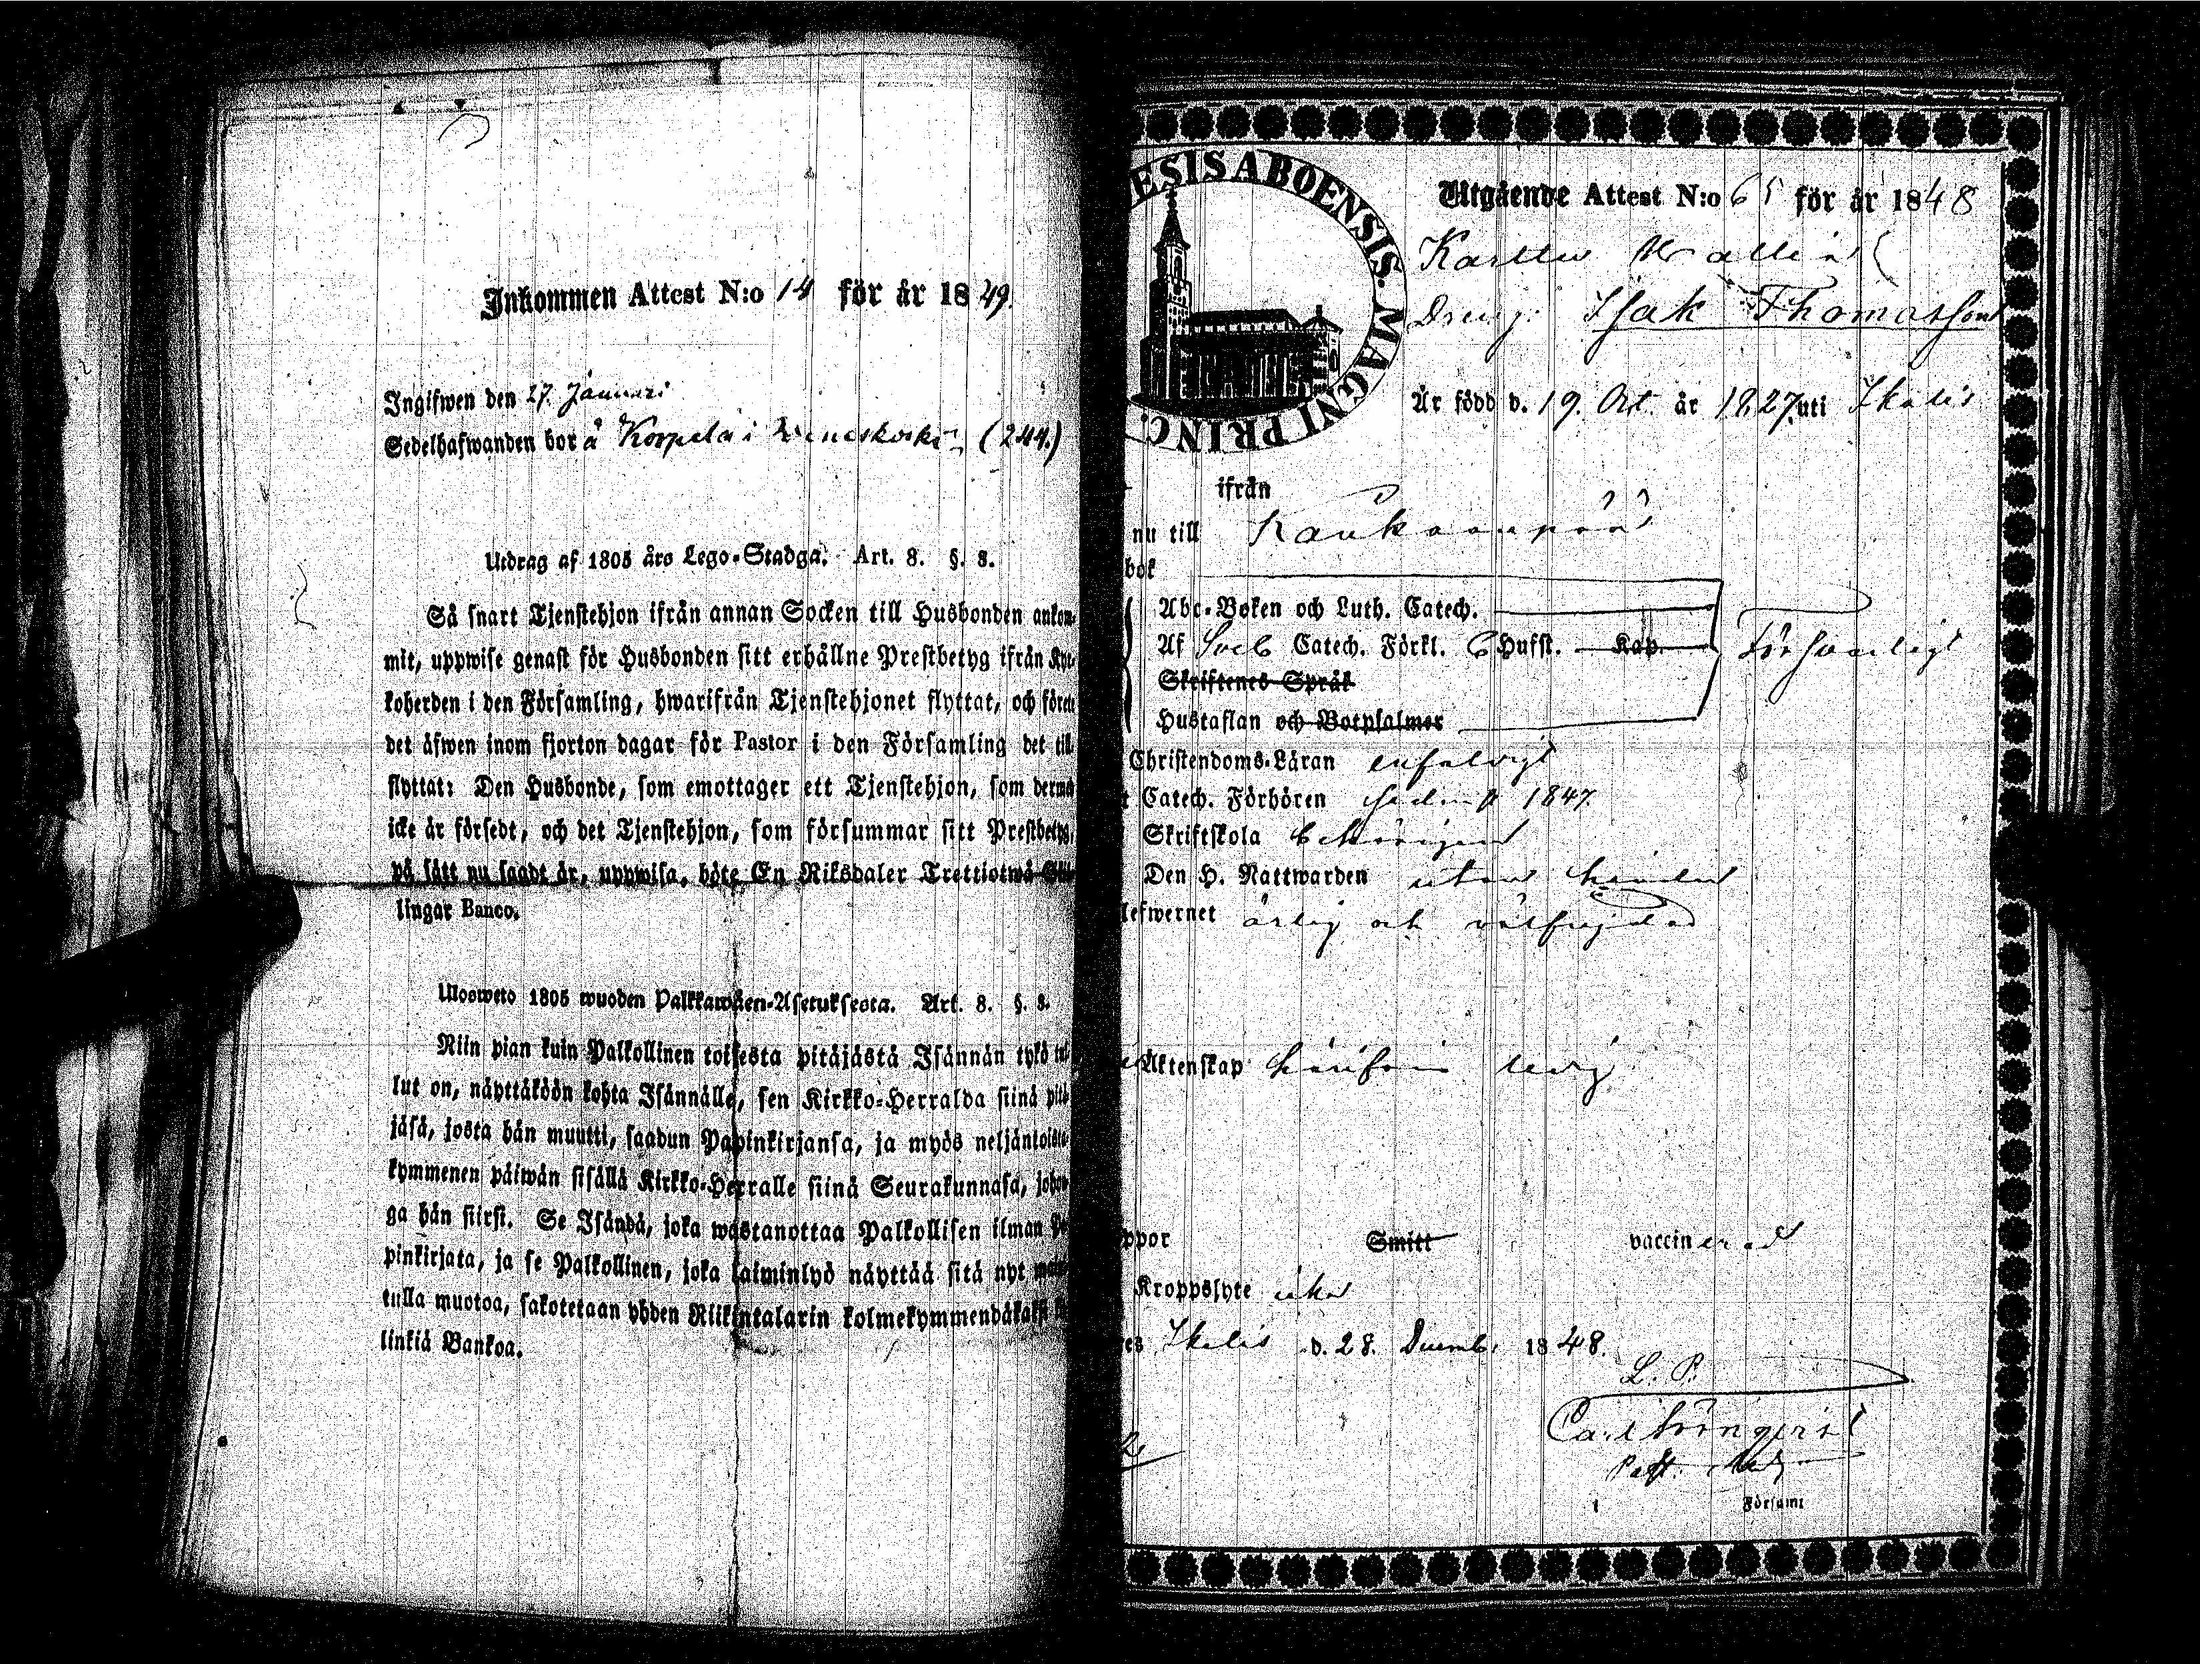 Inkommen Attest N:o 14 för år 1849.
Ingifwen den 27. Januari
Sedelhafwanden bor å Korpela i Veneskoski (244.)
Utdrag af 1805 års Lego-Stadga. Art. 8. §. 8.
Så snart Tjenstehjon ifrån annan Socken till Husbonden ankom-
mit, uppwise genast för Husbonden sitt erhållne Prestbetyg ifrån Kyr-
koherden i den Församling, hwarifrån Tjenstehjonet flyttat, och förete
det äfwen inom fjorton dagar för Pastor i den Församling det till-
flyttat: Den Husbonde, som emottager ett Tjenstehjon, som dermed
icke är försedt, och det Tjenstehjon, som försummar sitt Prestbetyg,
på sätt nu sagdt är, uppwisa, böte En Riksdaler Trettiotwå Skil-
lingar Banco.
Ulosweto 1805 wuoden Palkkawäen-Asetuksesta. Art. 8. §. 8.
Niin pian kuin Palkollinen toisesta pitäjästä Isännän tykö tul-
lut on, näyttäköön kohta Isännälle, sen Kirkko-Herralda siinä pitä-
jäsä, josta hän muutti, saadun Papinkirjansa, ja myös neljäntoista-
kymmenen päiwän sisällä Kirkko-Herralle siinä Seurakunnasa, johon-
ga hän siirsi. Se Isändä, joka wastanottaa Palkollisen ilman Pa-
pinkirjata, ja se Palkollinen, joka laiminlyö näyttää sitä nyt maini-
tulla muotoa, sakotetaan yhden Riikintalarin kolmekymmendäkaksi kil-
linkiä Bankoa.
ESIS ABOENSIS. MAGNI PRINC.
Utgående Attest N:o 65 för år 1848
Karttu
Dreng: Isak Thomasson
Är född d. 19. Oct. år 1827 uti Ikalis
ifrån
nu till Kankaanpää
bok
Abc-Boken och Luth. Catech.
Af Sveb Catech. Förkl. 6 Hufst. Kap. Försvarligt
Skriftenes Språk
Hustaflan och Botpsalmer
Christendoms-Läran enfaldigt
Catech. Förhören sednast 1847.
Skriftskola behörigen
Den H. Nattwarden utan hinder
lefwernet ärlig och välfrejdad
Äktenskap härifrån ledig
ppor Smitt vaccinerad
Kroppslyte utan
es Ikalis d. 28. Decemb. 1848.
L. P.
Past.
Församl